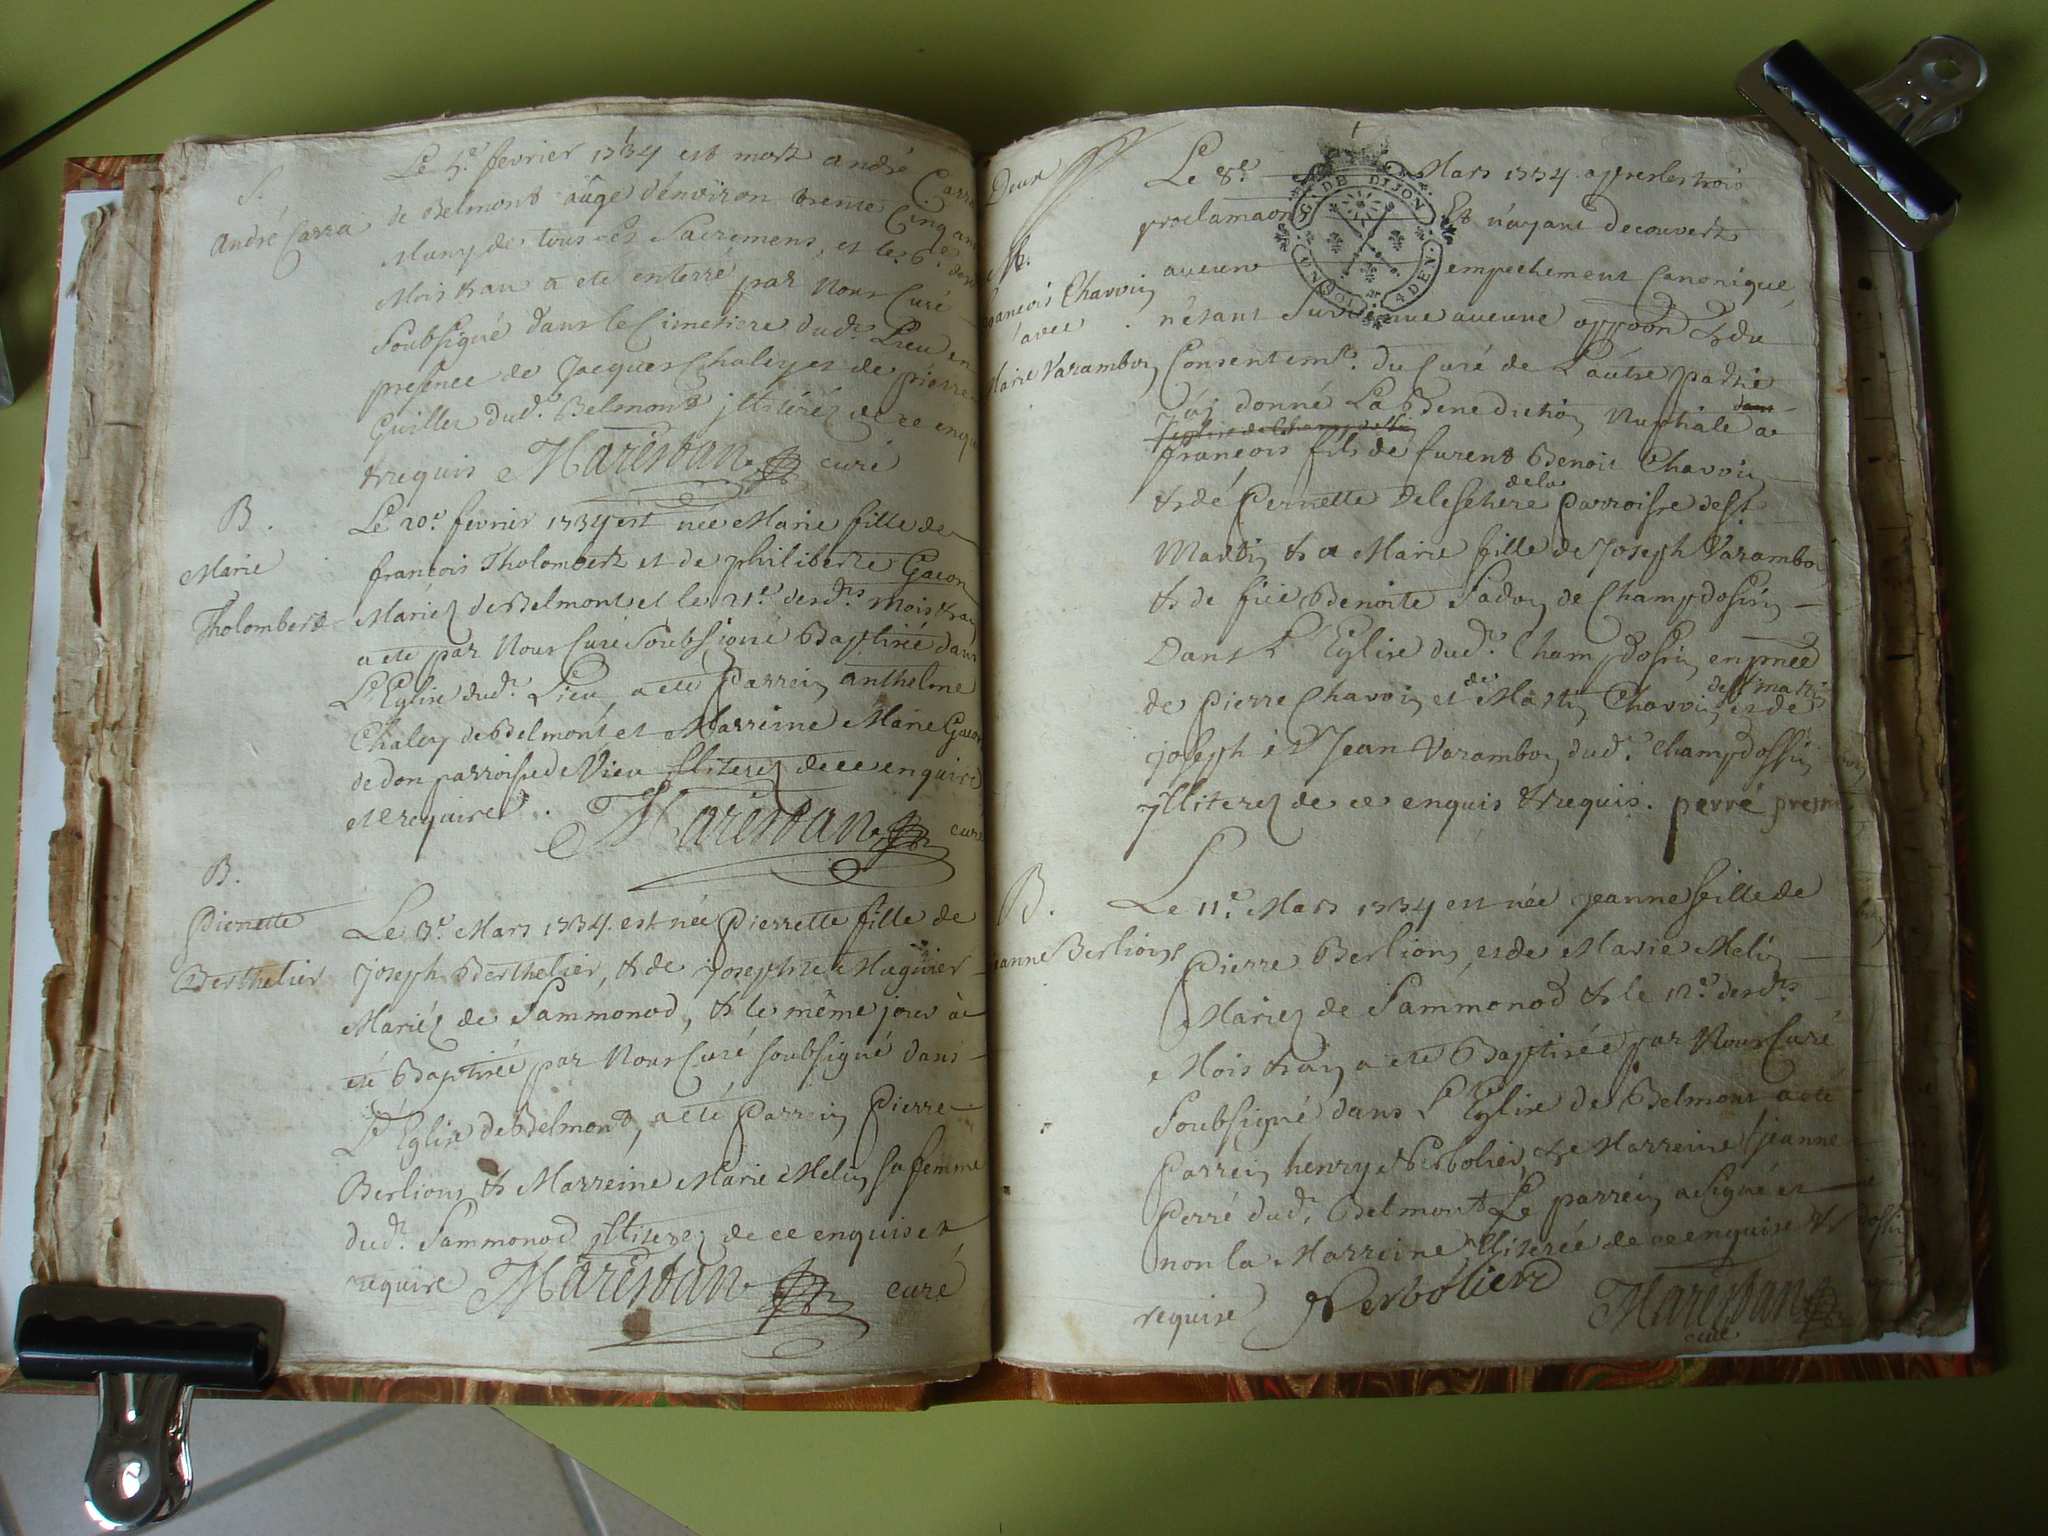 S.
André Carra
Le 5.e fevrier 1734 est mort andré Carra
de Belmont âûgé d'environ trente Cinq ans
Muny de tous les Sacremens, et le 6.e desd
Mois & an a été enterré par Nous Curé
Soubsigné dans le Cimetiere dud.t Lieu en
presence de Jacques Chaley et de pierre
Guillet dud.t Belmont jllitérés de ce enquis
& requis Marestan curé
B.
Marie
Tholombert
Le 20.e fevrier 1734 est née Marie fille de
françois Tholombert et de philiberte Gacon
Mariez de Belmont et le 21.e desd.ts mois & an
a été par Nous Curé Soubsigné Baptisée dans
L'Eglise dud.t Lieu a été Parrein anthelme
Chaley de Belmont et Marreine Marie Gacon
de don parroisse de Vieu jlliterez de ce enquire
et requires . Marestan curé
B.
Pierrette
Berthelier
Le 3.e Mars 1734. est née Pierrette fille de
joseph Berthelier, & de josephte Muguier
Mariéz de Sammonod, & le même jour a
été Baptisée par Nous Curé soubsigné dans
L'Eglise de Belmont, a été Parrein Pierre
Berlions & Marreine Marie Melin sa femme
dud.t Sammonod jlliterez de ce enquis et
requise Marestan curé
Deux
M.
françois Chavoin
avec
Marie Varambon
Le 8.e Mars 1734. apres les trois
proclamaons Et n'ayant decouvert
aucune empechement Canonique,
n'étant Survenue aucune oppoon & du
Consentem.t du Curé de L'autre partie
J'ai donné La Benediction Nuptiale dans
l'eglise de Champdossin a
françois fils de furent Benoit Chavoin
& de Pernette Delesehere de la Parroisse de St
Martin & a Marie fille de Joseph Varambon
& de füe Benoite Sadon de Champdosin
Dans L'Eglise dud.t Champdosin en pnce
de Pierre Chavoin et de Martin Chavoin de St martin et de
joseph et Jean Varambon dud.t Champdossin
jlliterez de ce enquis & requis. perré
B.
jeanne Berlions
Le 11.e Mars 1734 est née jeanne feille de
Pierre Berlion, et de Marie Melin
Mariez de Sammonod & le 12.e desd.ts
Mois & an a été Baptisée par Nous Curé
Soubsigné dans L'Eglise de Belmont a été
Parrein henry Perbolier, & Marreine jeanne
Perré dud.t Belmont Le parrein a signé et
non la Marreine jlliterée de ce enquise &
requise Perbolier Marestan
curé
G. DE DIJON
UN SOL
4 DEN.